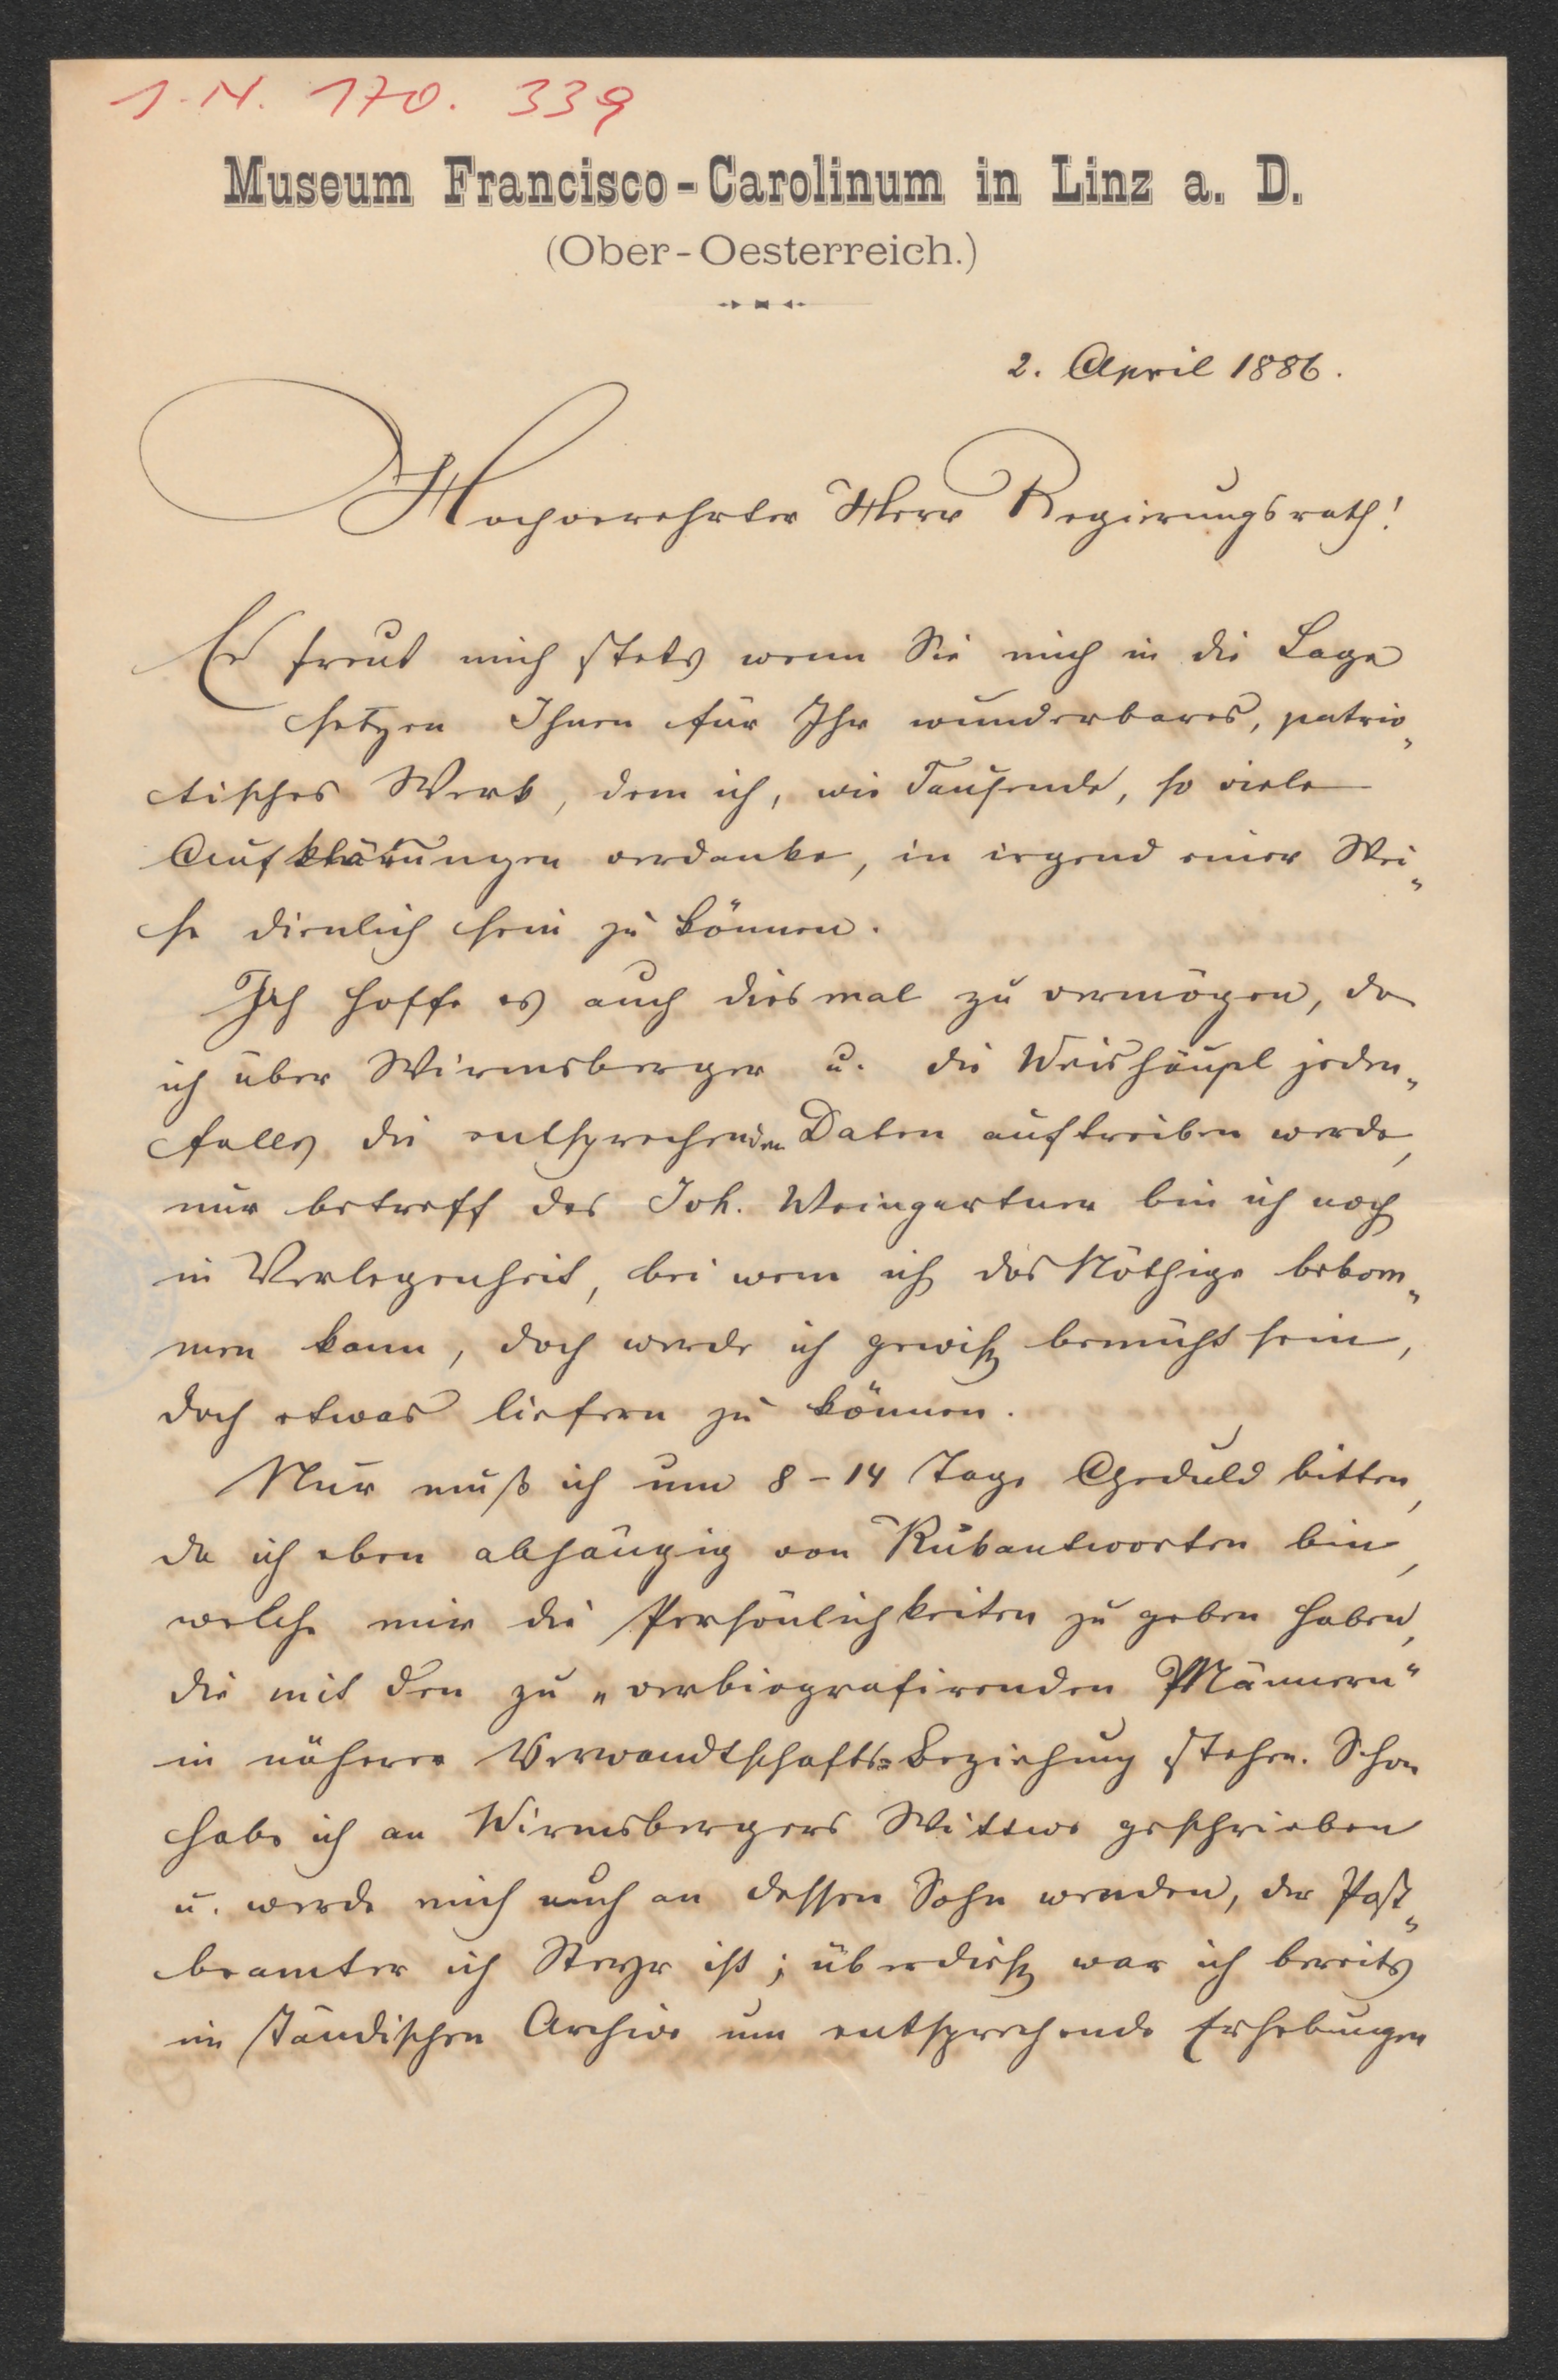 I. N. 170. 339
Museum Francisco-Carolinum in Linz a. D.
(Ober-Oesterreich.)
2. April 1886.
Hochverehrter Herr Regierungsrath!
Es freut mich stets wenn Sie mich in die Lage
setzen Ihnen für Ihr wunderbares, patrio„
tisches Werk, dem ich, wie Tausende, so viele
Aufklärungen verdanke, in irgend einer Wei„
se dienlich sein zu können.
Ich hoffe es auch diesmal zu vermögen, da
ich über Wirmsberger u. die Weishäupl jeden„
falls die entsprechenden Daten auftreiben werde,
nur betreff des Joh. Weingartner bin ich noch
in Verlegenheit, bei wem ich das Nöthige bekom„
men kann, doch werde ich gewiß bemüht sein,
doch etwas liefern zu können.
Nur muß ich um 8-14 Tage Geduld bitten,
da ich eben abhängig von Rükantworten bin,
welche mir die Persönlichkeiten zu geben haben,
die mit den zu „verbiografirenden Männern"
in näherer Verwandtschafts-Beziehung stehen. Schon
habe ich an Wirmsbergers Wittwe geschrieben
u. werde mich auch an dessen Sohn wenden, der Post„
beamter ich Steyr ist; überdieß war ich bereits
im ständischen Archive um entsprechende Erhebungen